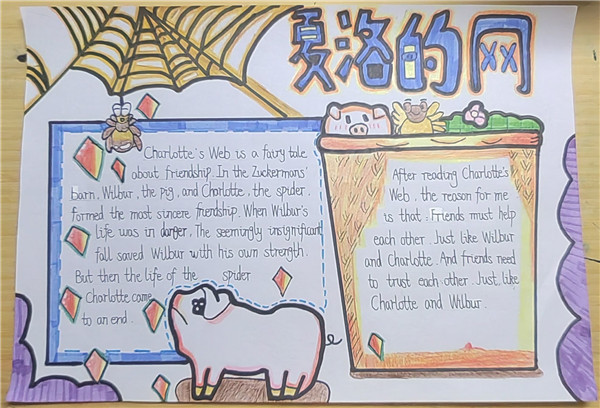 夏洛的网
Charlotte's Web is a fairy tale
about friendship. In the Zuckermans'
barn, Wilbur, the pig, and Charlotte, the spider,
formed the most sincere friendship. When Wilbur's
life was in danger, The seemingly insignificant
fall saved Wilbur with his own strength.
But then the life of the spider
Charlotte come
to an end.
After reading Charlotte's
Web, the reason for me
is that. Friends must help
each other. Just like Wilbur
and Charlotte. And friends need
to trust each other. Just like
Charlotte and Wilbur.